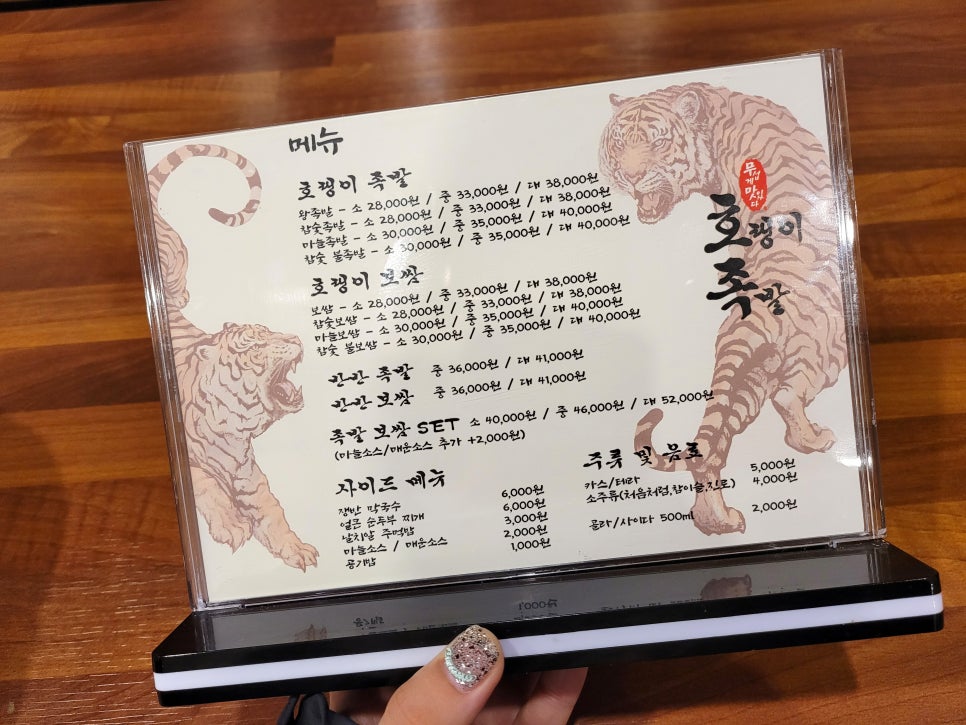 메뉴
호랭이 족발
왕족발 - 소 28,000원 / 중 33,000원 / 대 38,000원
참숯족발 - 소 28,000원 / 중 33,000원 / 대 38,000원
마늘족발 - 소 30,000원 / 중 35,000원 / 대 40,000원
참숯 불족발 - 소 30,000원 / 중 35,000원 / 대 40,000원
호랭이 보쌈
보쌈 - 소 28,000원 / 중 33,000원 / 대 38,000원
참숯보쌈 - 소 28,000원 / 중 33,000원 / 대 38,000원
마늘보쌈 - 소 30,000원 / 중 35,000원 / 대 40,000원
참숯 불보쌈 - 소 30,000원 / 중 35,000원 / 대 40,000원
반반 족발 중 36,000원 / 대 41,000원
반반 보쌈 중 36,000원 / 대 41,000원
족발 보쌈 SET 소 40,000원 / 중 46,000원 / 대 52,000원
(마늘소스/매운소스 추가 +2,000원)
사이드 메뉴
쟁반 막국수 6,000원
얼큰 순두부 찌개 6,000원
날치알 주먹밥 3,000원
마늘소스 / 매운소스 2,000원
공기밥 1,000원
주류 및 음료
카스/테라 5,000원
소주류(처음처럼,참이슬,진로) 4,000원
콜라/사이다 500ml 2,000원
무섭게 맛있다
호랭이
족발